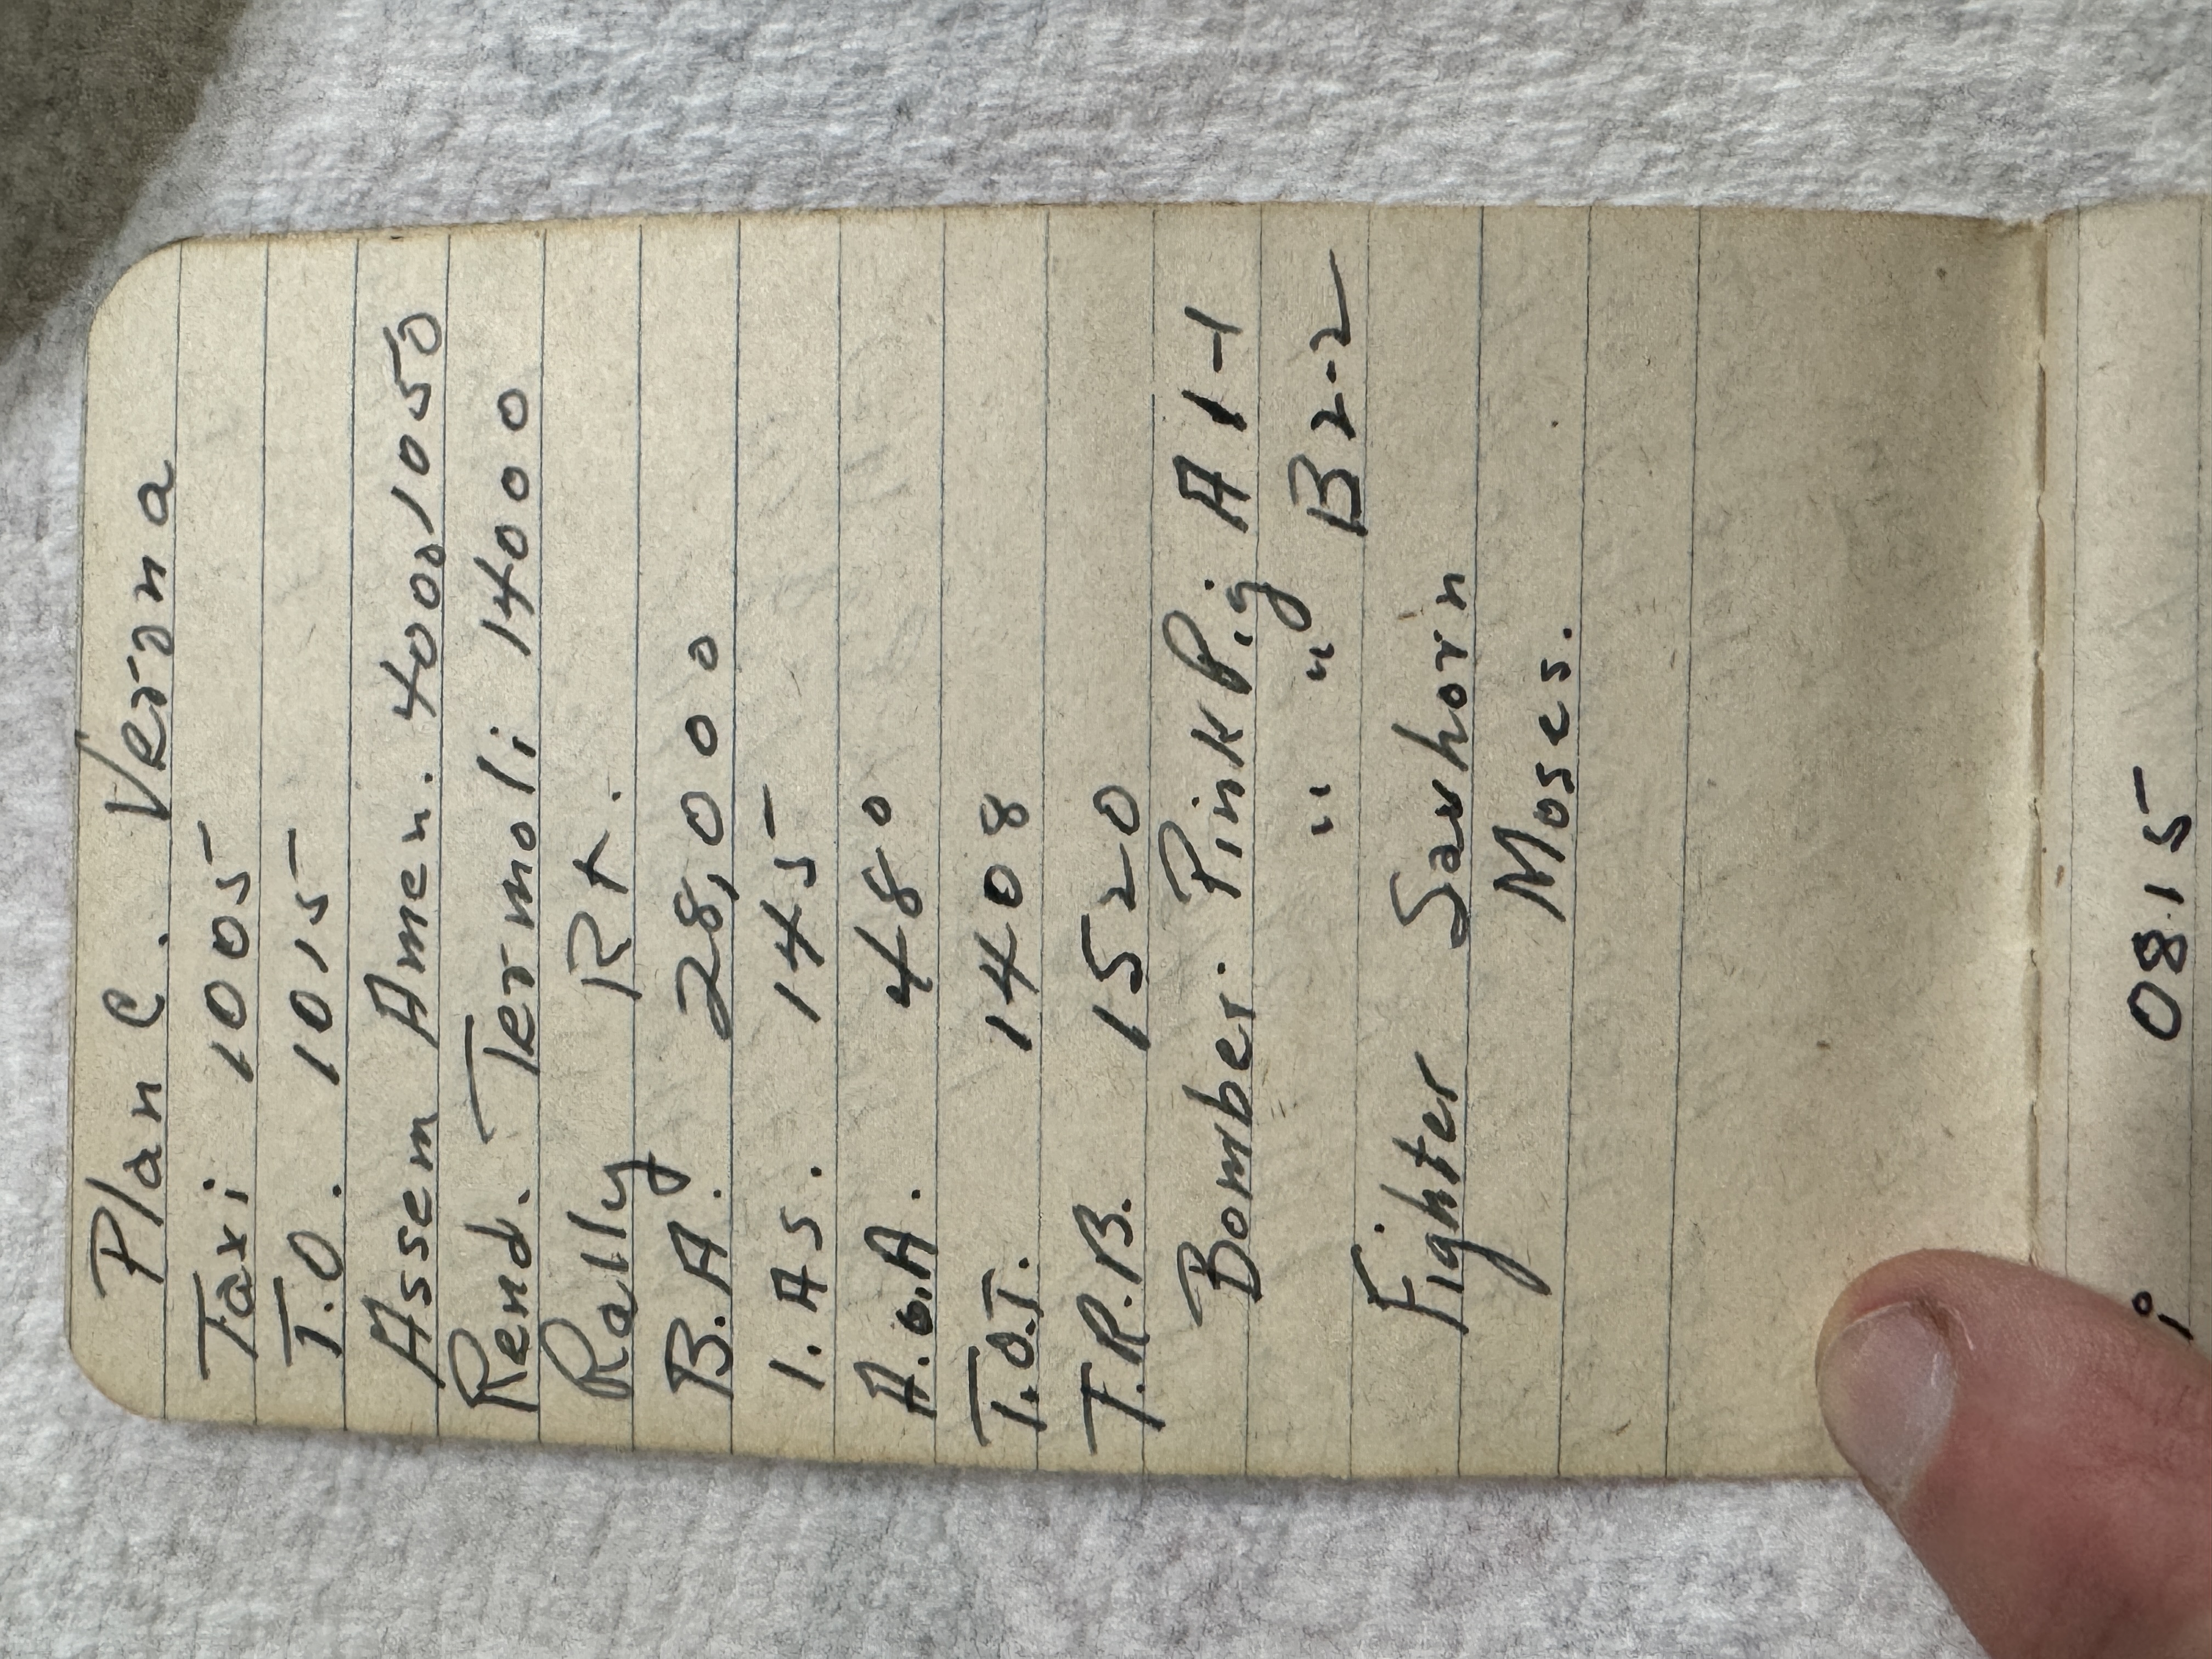 Plan C. Verona
Taxi 1005
T.O. 1015
Assem Amen. 4000, 1050
Rend. Termoli 14000
Rally Rt.
B.A. 28,000
I.A.S. 145
A.o.A. 480
T.O.T. 1408
T.R.B. 1520
Bomber. Pink Pig A 1-1
" " B 2-2
Fighter Saxhorn
Moses.
0815